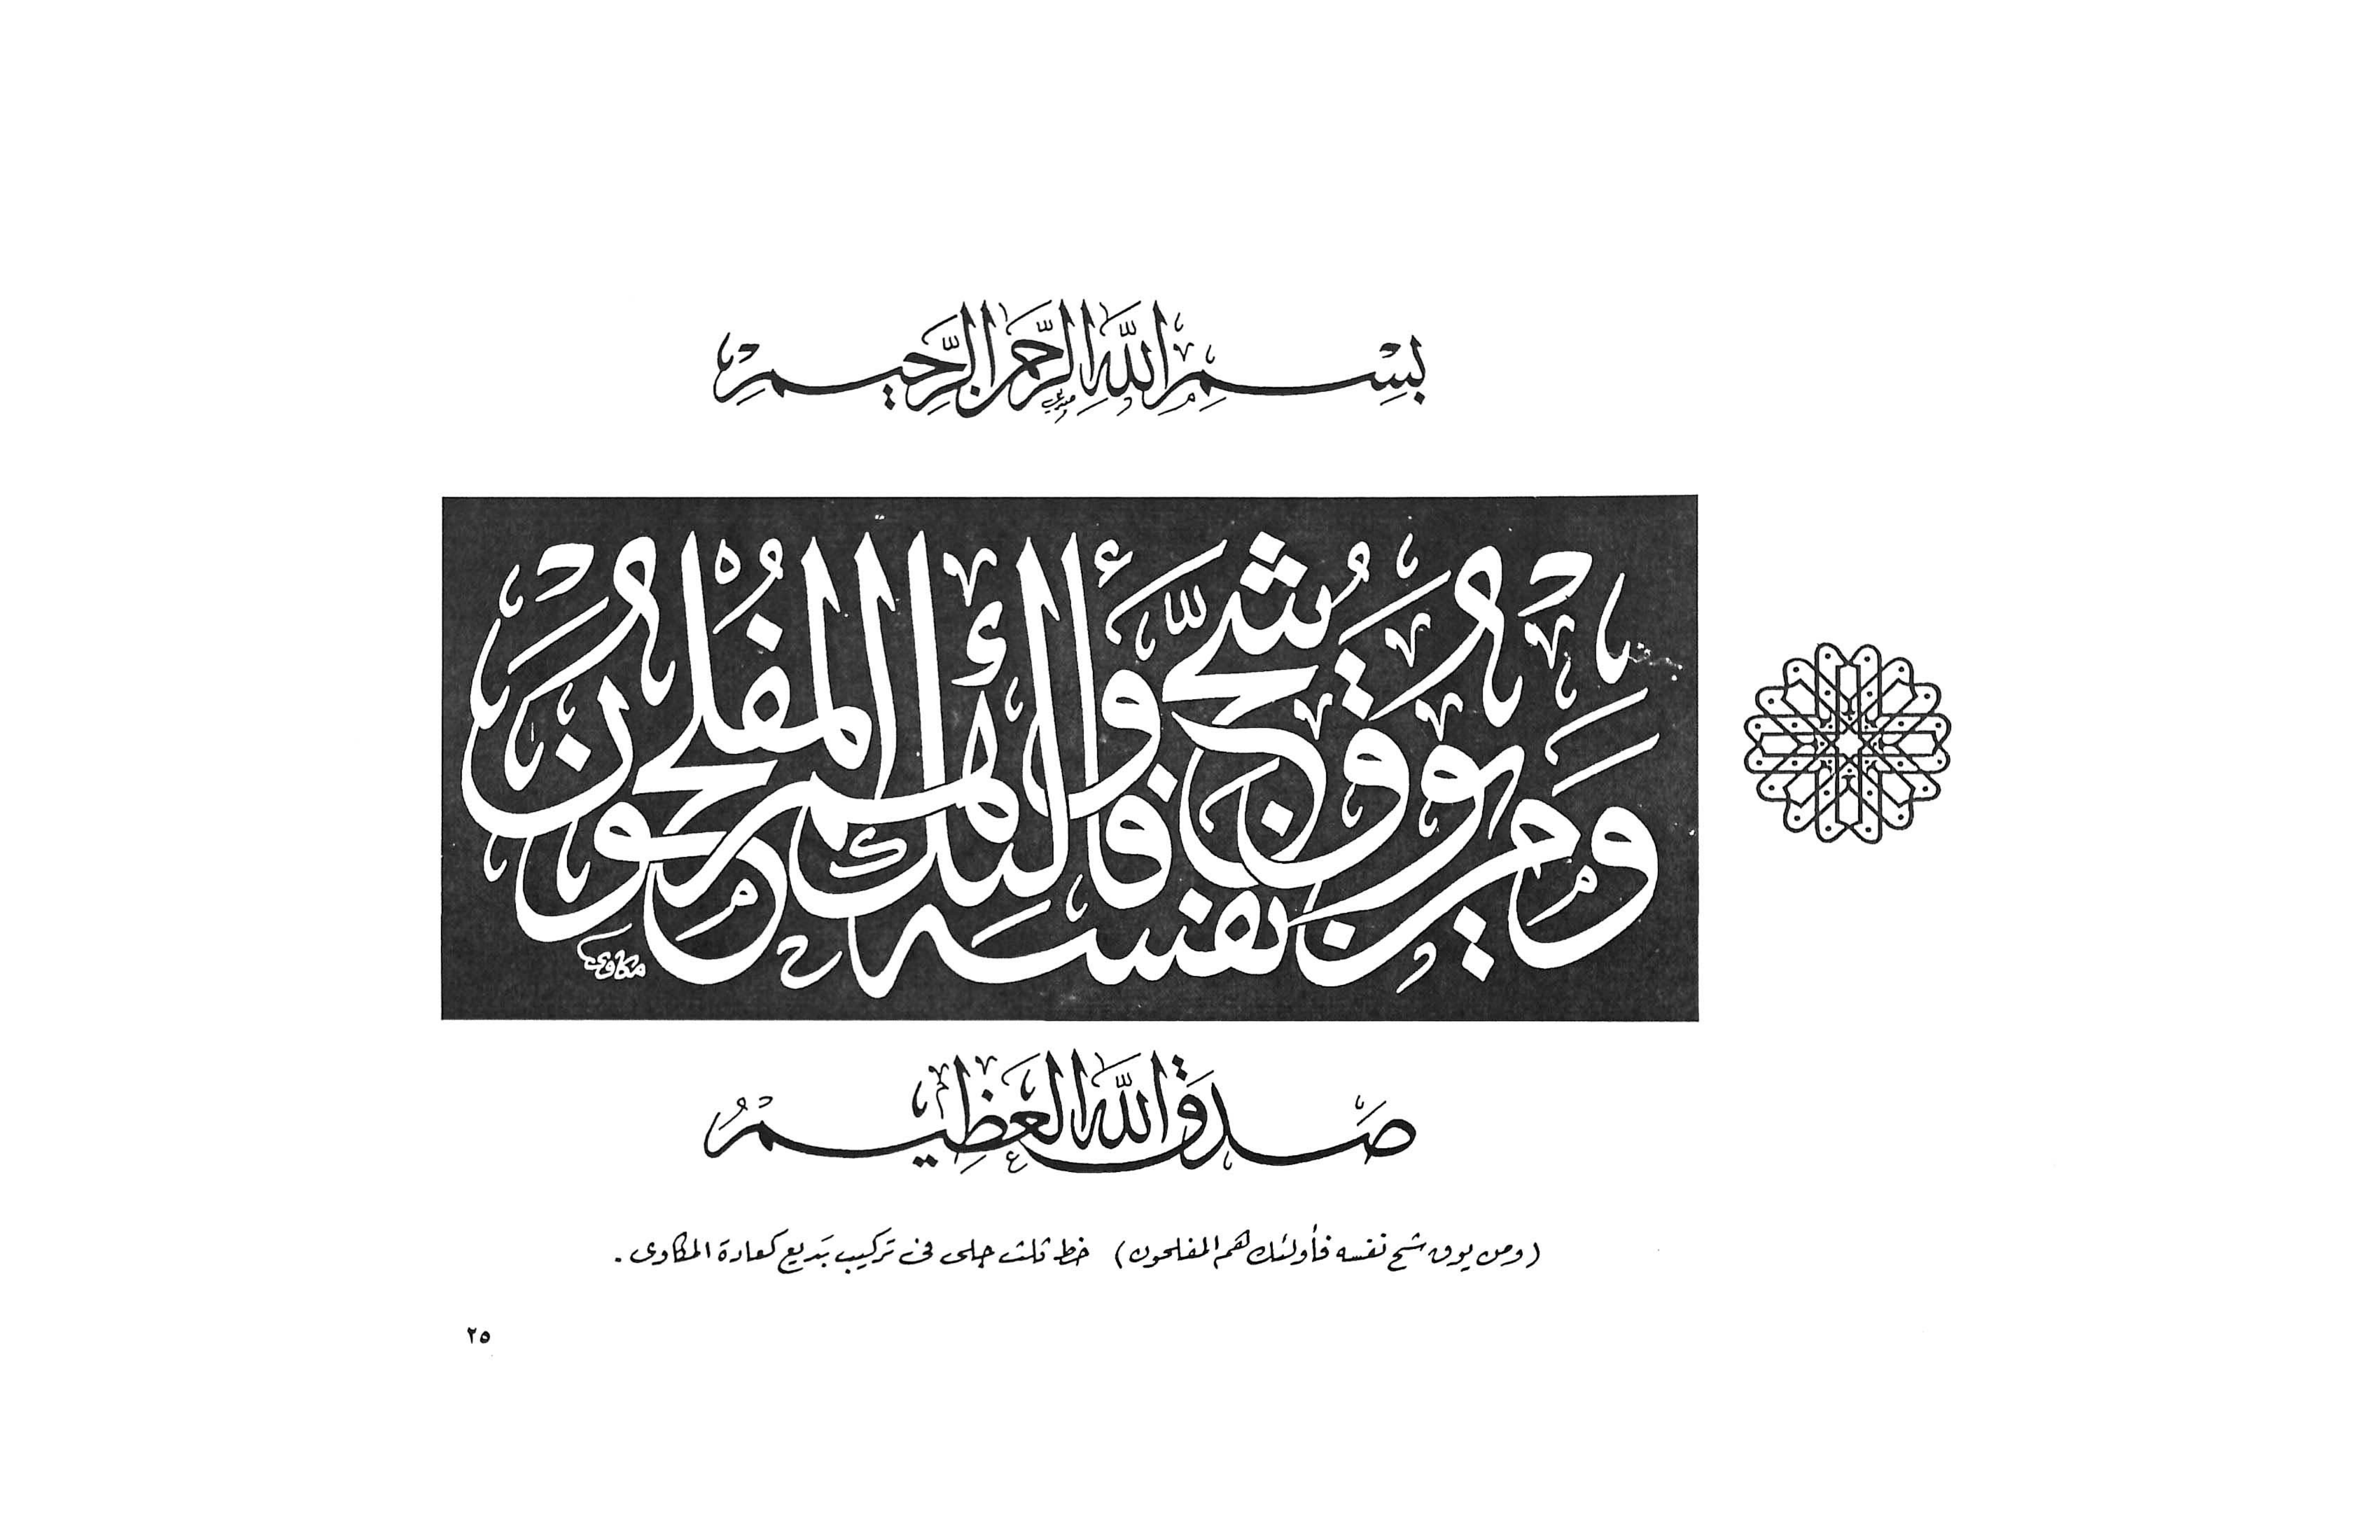 بِسْمِ اللَّهِ الرَّحْمَنِ الرَّحِيمِ
وَمَن يُوقَ شُحَّ نَفْسِهِ فَأُولَئِكَ هُمُ الْمُفْلِحُونَ
مكاوى
صَدَقَ اللَّهُ الْعَظِيمُ
(ومن يوق شح نفسه فأولئك هم المفلحون) خط ثلث جلى فى تركيب بَديع كعادة المكاوى .
٢٥